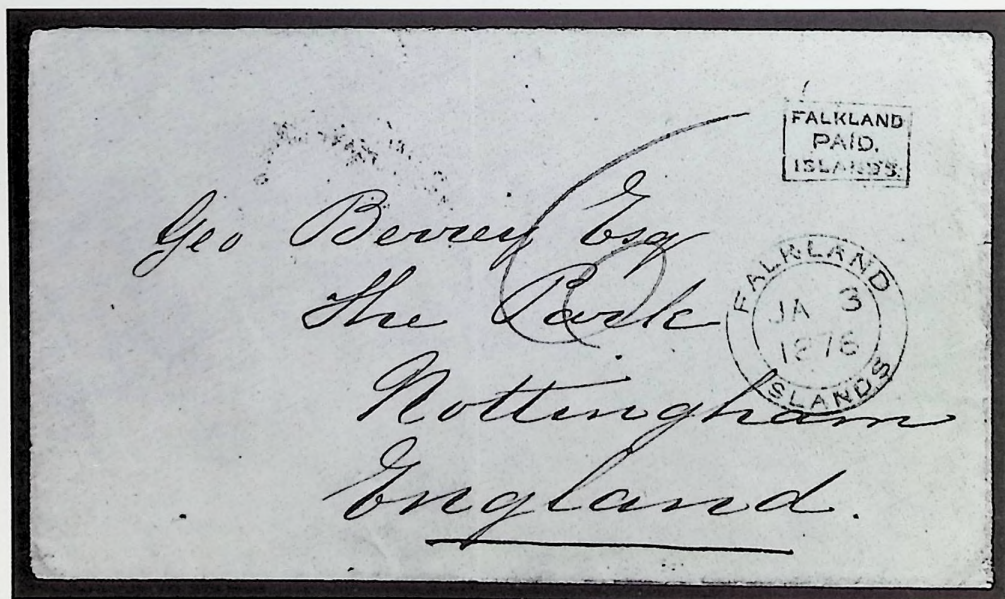 FALKLAND
PAID.
ISLANDS.
6
Geo Berrey Esq
The Park
Nottingham
England.
FALKLAND
JA 3
1878
ISLANDS